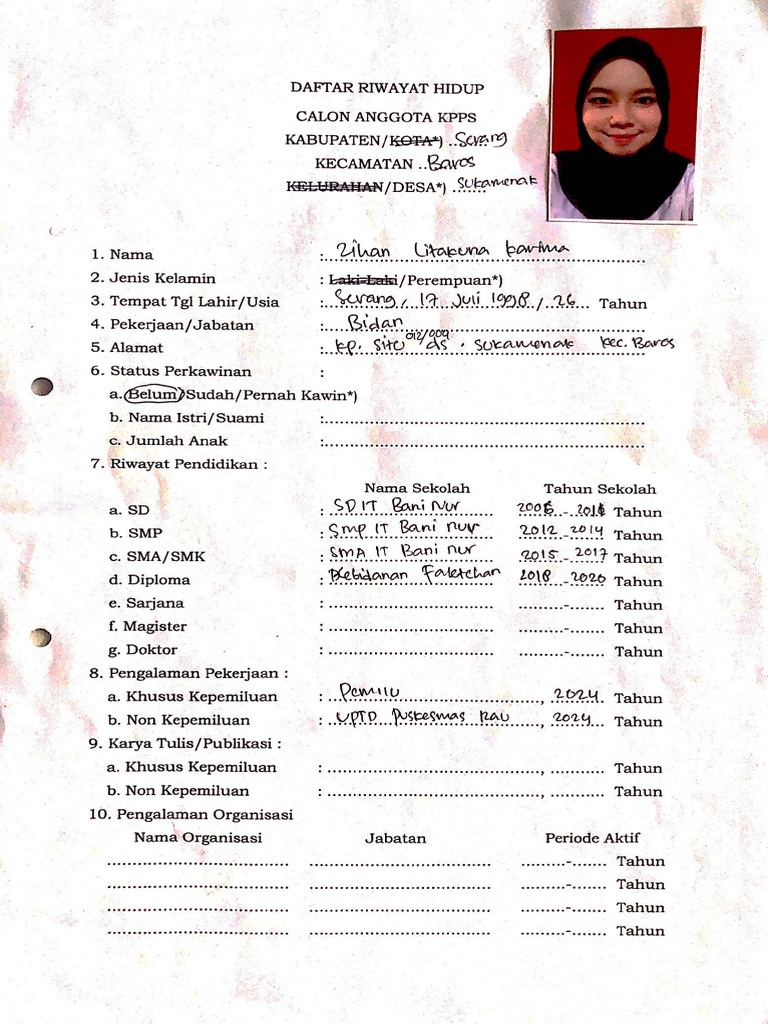 DAFTAR RIWAYAT HIDUP
CALON ANGGOTA KPPS
KABUPATEN/KOTA*) ..Serang
KECAMATAN ..Baros
KELURAHAN/DESA*) ..Sukamenak
1. Nama : Zihan Litakuna karima
2. Jenis Kelamin : Laki-Laki/Perempuan*)
3. Tempat Tgl Lahir/Usia : Serang, 17 Juli 1998 / 26 Tahun
4. Pekerjaan/Jabatan : Bidan
5. Alamat : kp. Situ 012/004 ds. sukamenak kec. Baros
6. Status Perkawinan :
a. Belum/Sudah/Pernah Kawin*)
b. Nama Istri/Suami :
c. Jumlah Anak :
7. Riwayat Pendidikan :
Nama Sekolah Tahun Sekolah
a. SD : SD IT Bani Nur - Tahun
b. SMP : Smp IT Bani nur 2012 - 2014 Tahun
c. SMA/SMK : SMA IT Bani nur 2015 - 2017 Tahun
d. Diploma : Kebidanan Faletehan 2018 - 2020 Tahun
e. Sarjana : - Tahun
f. Magister : - Tahun
g. Doktor : - Tahun
8. Pengalaman Pekerjaan :
a. Khusus Kepemiluan : Pemilu , 2024 Tahun
b. Non Kepemiluan : UPTD Puskesmas Rau , 2024 Tahun
9. Karya Tulis/Publikasi :
a. Khusus Kepemiluan : , Tahun
b. Non Kepemiluan : , Tahun
10. Pengalaman Organisasi
Nama Organisasi Jabatan Periode Aktif
- Tahun
- Tahun
- Tahun
- Tahun